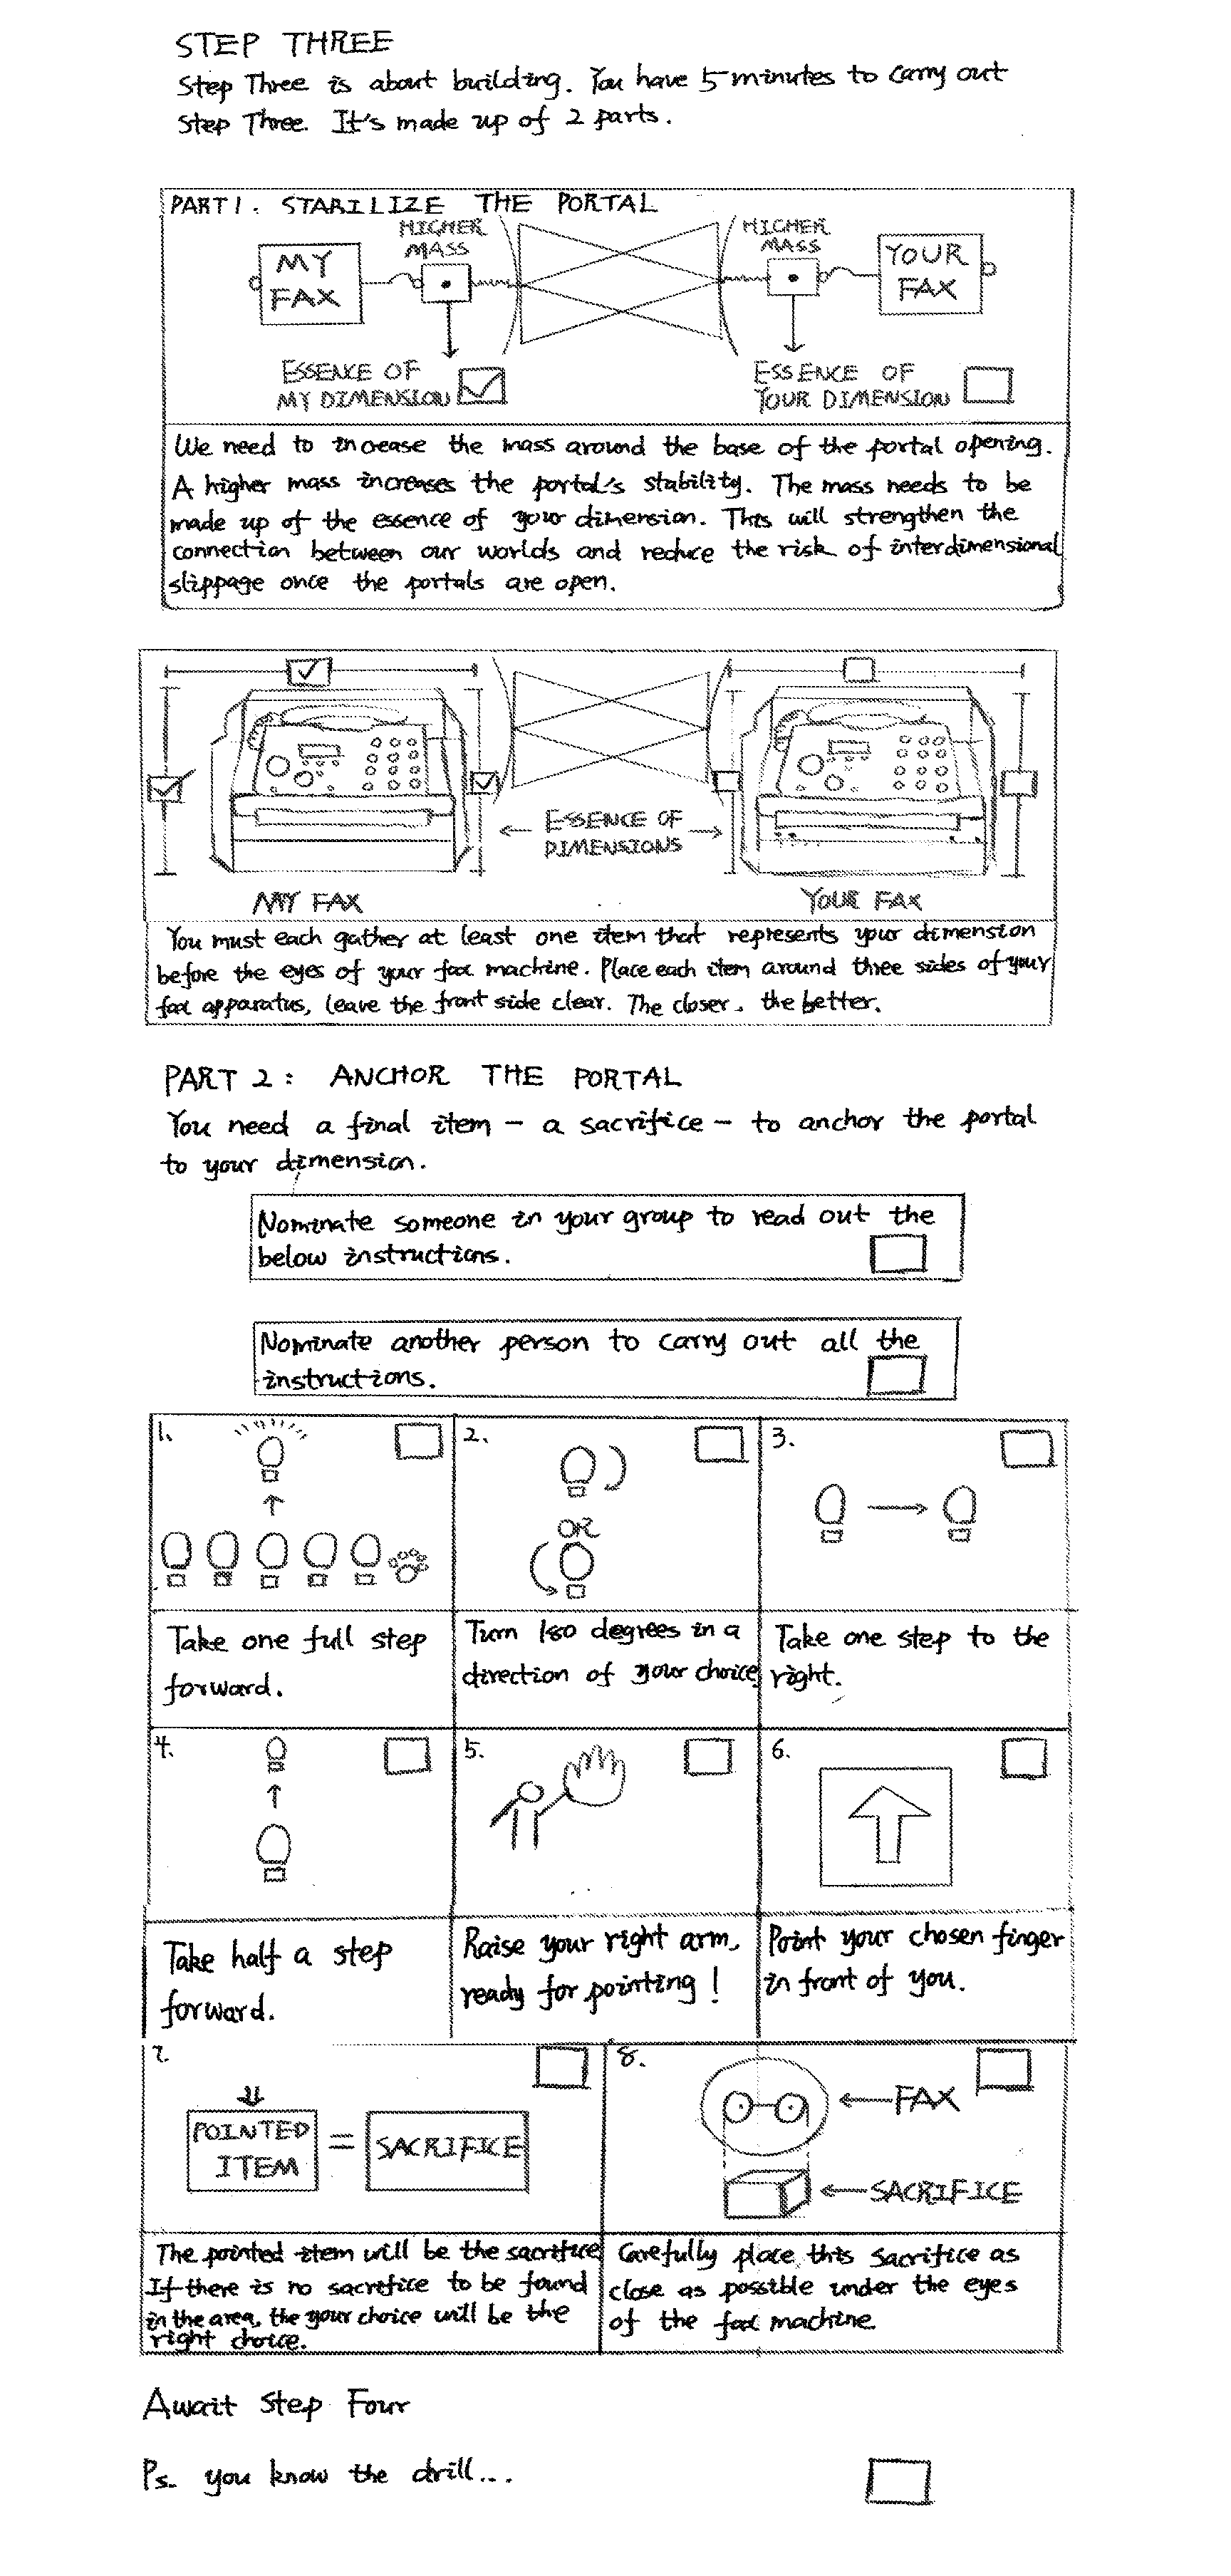 STEP THREE
Step Three is about building. You have 5 minutes to carry out
Step Three. It's made up of 2 parts.
PART 1. STABILIZE THE PORTAL
HIGHER
MASS
HIGHER
MASS
MY
FAX
YOUR
FAX
ESSENCE OF
MY DIMENSION
ESSENCE OF
YOUR DIMENSION
We need to increase the mass around the base of the portal opening.
A higher mass increases the portal's stability. The mass needs to be
made up of the essence of your dimension. This will strengthen the
connection between our worlds and reduce the risk of interdimensional
slippage once the portals are open.
ESSENCE OF
DIMENSIONS
MY FAX
YOUR FAX
You must each gather at least one item that represents your dimension
before the eyes of your fax machine. Place each item around three sides of your
fax apparatus, leave the front side clear. The closer, the better.
PART 2: ANCHOR THE PORTAL
You need a final item - a sacrifice - to anchor the portal
to your dimension.
Nominate someone in your group to read out the
below instructions.
Nominate another person to carry out all the
instructions.
1.
Take one full step
forward.
2.
OR
Turn 180 degrees in a
direction of your choice
3.
Take one step to the
right.
4.
Take half a step
forward.
5.
Raise your right arm,
ready for pointing!
6.
Point your chosen finger
in front of you.
7.
POINTED
ITEM
=
SACRIFICE
The pointed item will be the sacrifice
If there is no sacrifice to be found
in the area, the your choice will be the
right choice.
8.
FAX
SACRIFICE
Carefully place this sacrifice as
close as possible under the eyes
of the fax machine
Await Step Four
Ps. you know the drill...